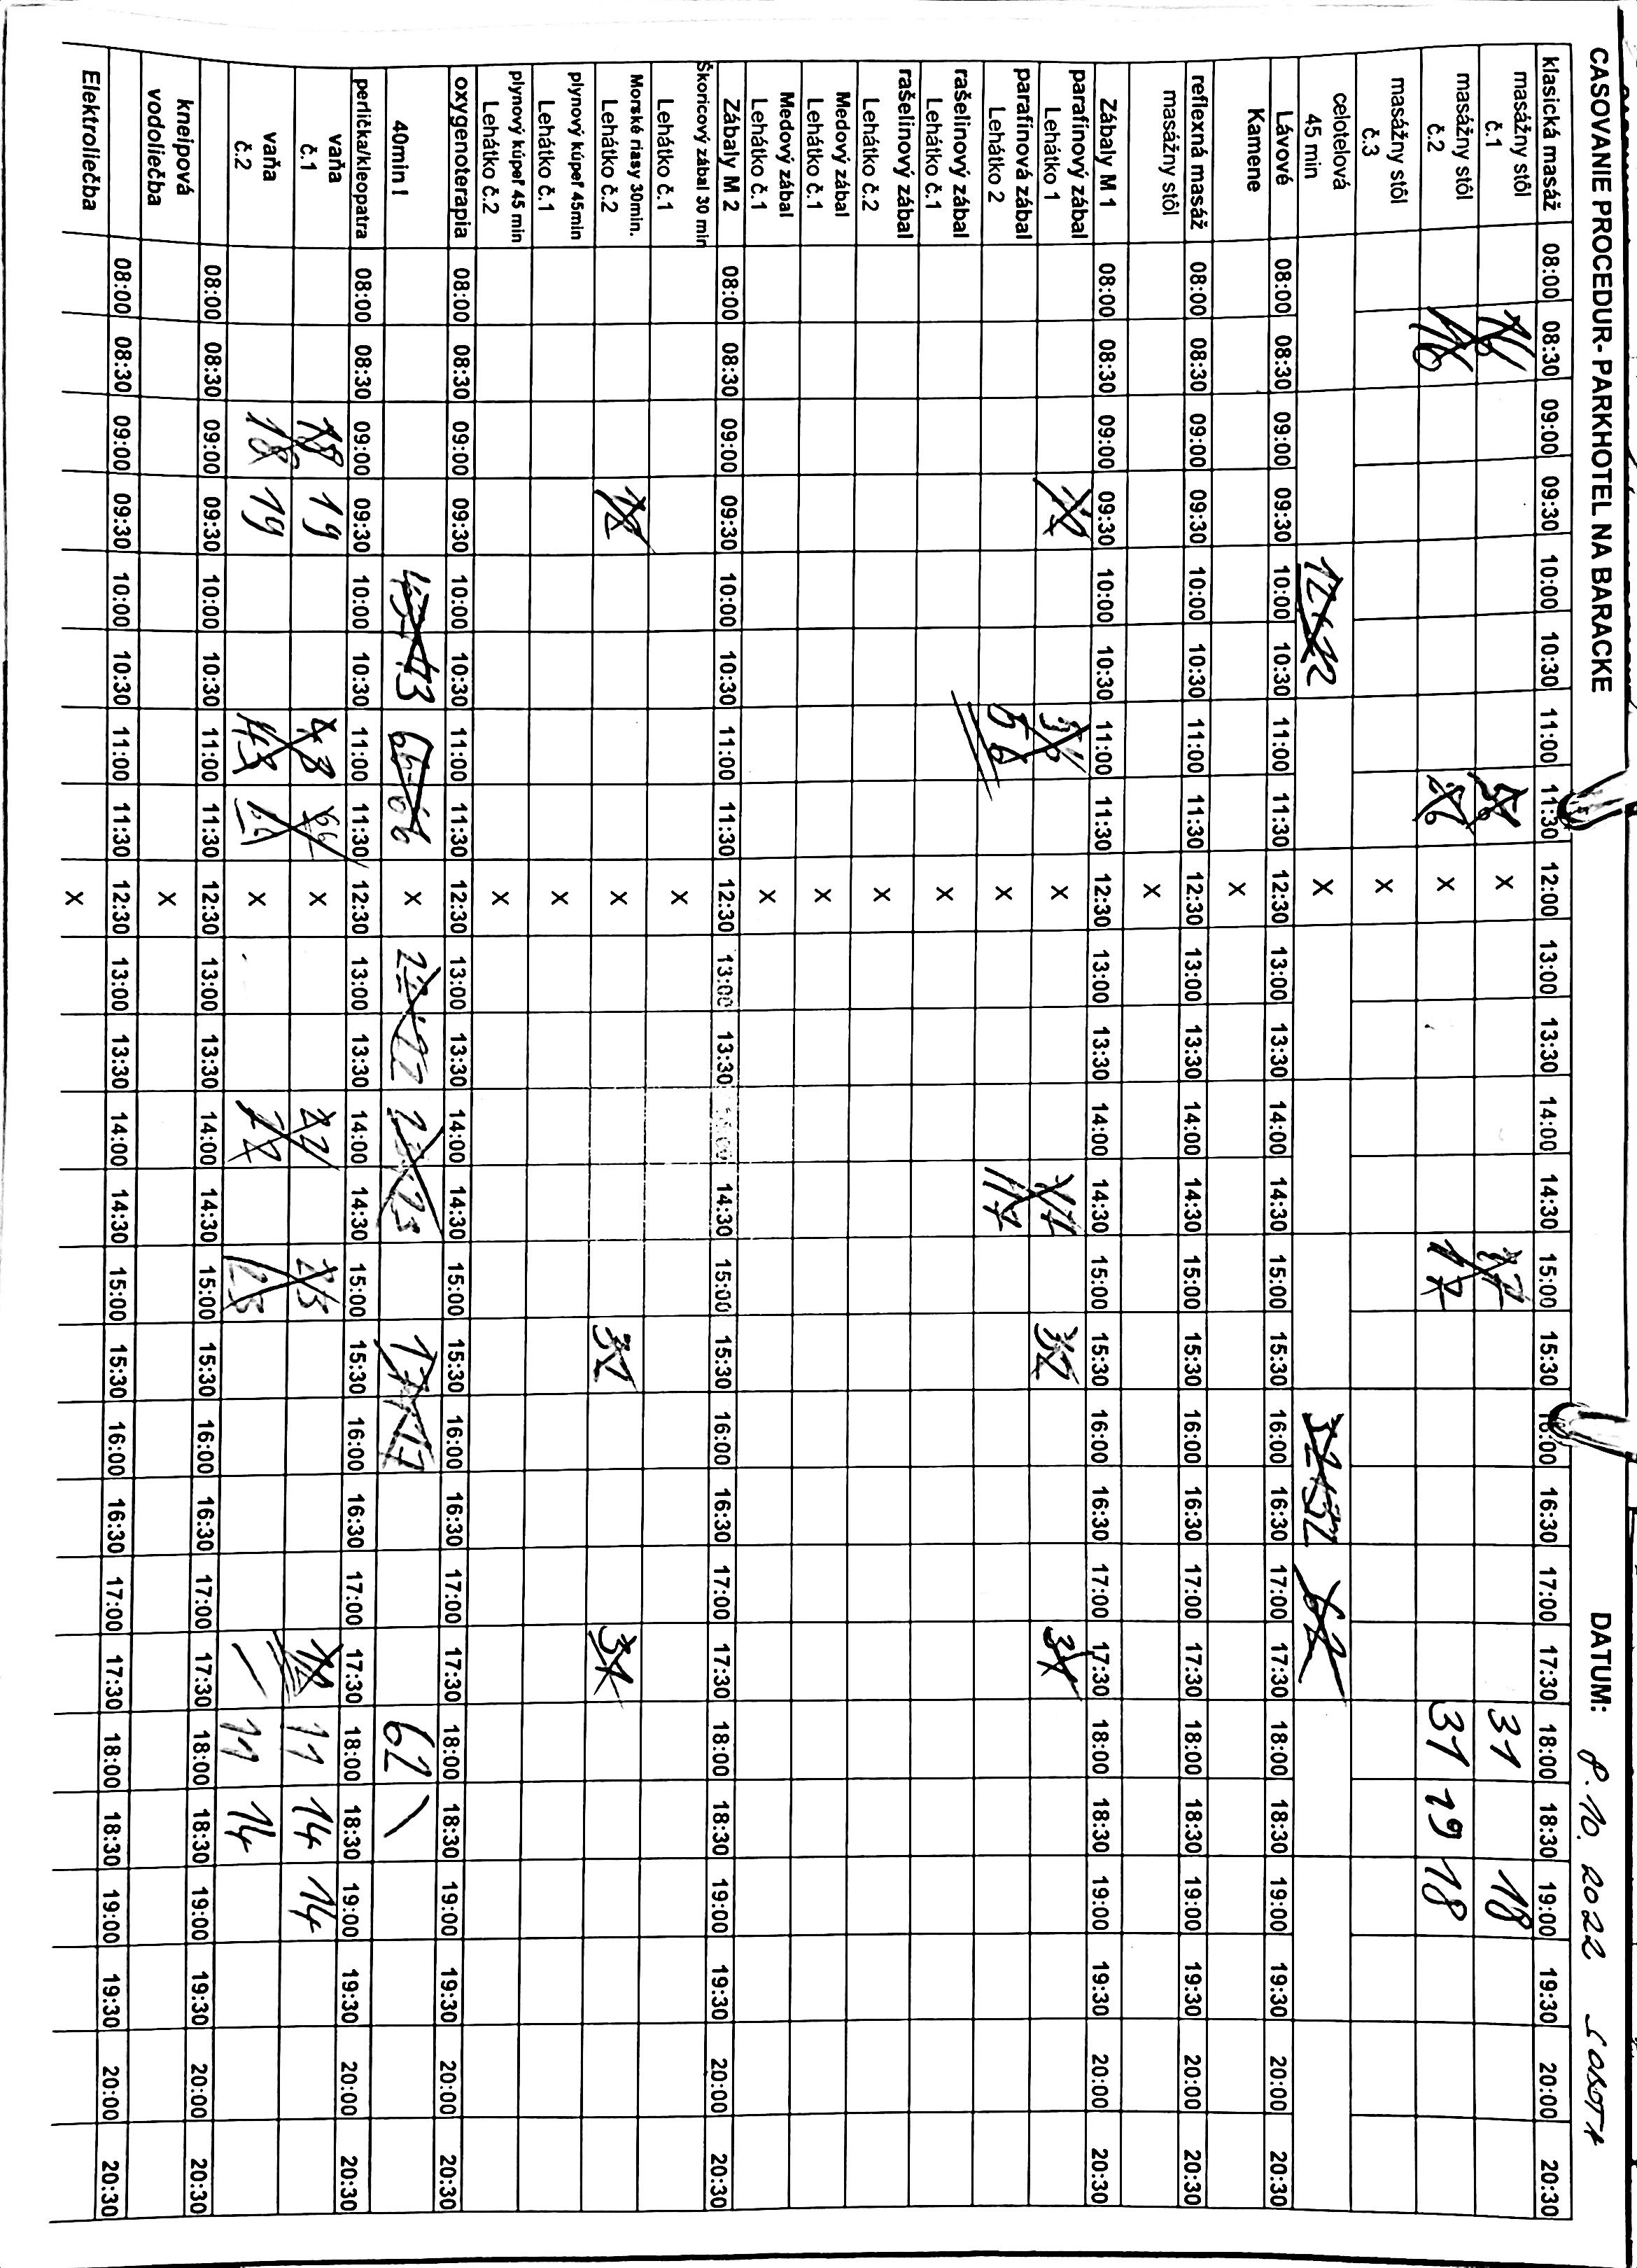 CASOVANIE PROCEDUR- PARKHOTEL NA BARACKE DATUM: 8.10.2022 SOBOTA
klasická masáž 08:00 08:30 09:00 09:30 10:00 10:30 11:00 11:30 12:00 13:00 13:30 14:00 14:30 15:00 15:30 16:00 16:30 17:00 17:30 18:00 18:30 19:00 19:30 20:00 20:30
masážny stôl
č.1 16 56 X 17 31 18
masážny stôl
č.2 16 56 X 17 31 19 18
masážny stôl
č.3 X
celotelová
45 min X 62
Lávové 08:00 08:30 09:00 09:30 10:00 10:30 11:00 11:30 12:30 13:00 13:30 14:00 14:30 15:00 15:30 16:00 16:30 17:00 17:30 18:00 18:30 19:00 19:30 20:00 20:30
Kamene X
reflexná masáž 08:00 08:30 09:00 09:30 10:00 10:30 11:00 11:30 12:30 13:00 13:30 14:00 14:30 15:00 15:30 16:00 16:30 17:00 17:30 18:00 18:30 19:00 19:30 20:00 20:30
masážny stôl X
Zábaly M 1 08:00 08:30 09:00 09:30 10:00 10:30 11:00 11:30 12:30 13:00 13:30 14:00 14:30 15:00 15:30 16:00 16:30 17:00 17:30 18:00 18:30 19:00 19:30 20:00 20:30
parafínový zábal
Lehátko 1 56 X 17 32 31
parafínová zábal
Lehátko 2 56 X 17
rašelinový zábal
Lehátko č.1 X
rašelinový zábal
Lehátko č.2 X
Medový zábal
Lehátko č.1 X
Medový zábal
Lehátko č.1 X
Zábaly M 2 08:00 08:30 09:00 09:30 10:00 10:30 11:00 11:30 12:30 13:00 13:30 14:30 15:00 15:30 16:00 16:30 17:00 17:30 18:00 18:30 19:00 19:30 20:00 20:30
Škoricový zábal 30 min
Lehátko č.1 X
Morské riasy 30min.
Lehátko č.2 18 X 32 31
plynový kúpeľ 45min
Lehátko č.1 X
plynový kúpeľ 45 min
Lehátko č.2 X
oxygenoterapia 08:00 08:30 09:00 09:30 10:00 10:30 11:00 11:30 12:30 13:00 13:30 14:00 14:30 15:00 15:30 16:00 16:30 17:00 17:30 18:00 18:30 19:00 19:30 20:00 20:30
40min ! 43 43 66 66 X 22 22 23 23 17 17 62 \
perlička/kleopatra 08:00 08:30 09:00 09:30 10:00 10:30 11:00 11:30 12:30 13:00 13:30 14:00 14:30 15:00 15:30 16:00 16:30 17:00 17:30 18:00 18:30 19:00 19:30 20:00 20:30
vaňa
č.1 18 19 43 66 X 22 23 11 14 14
vaňa
č.2 18 19 43 X 22 23 / 11 14
08:00 08:30 09:00 09:30 10:00 10:30 11:00 11:30 12:30 13:00 13:30 14:00 14:30 15:00 15:30 16:00 16:30 17:00 17:30 18:00 18:30 19:00 19:30 20:00 20:30
kneipová
vodoliečba X
08:00 08:30 09:00 09:30 10:00 10:30 11:00 11:30 12:30 13:00 13:30 14:00 14:30 15:00 15:30 16:00 16:30 17:00 17:30 18:00 18:30 19:00 19:30 20:00 20:30
Elektroliečba X